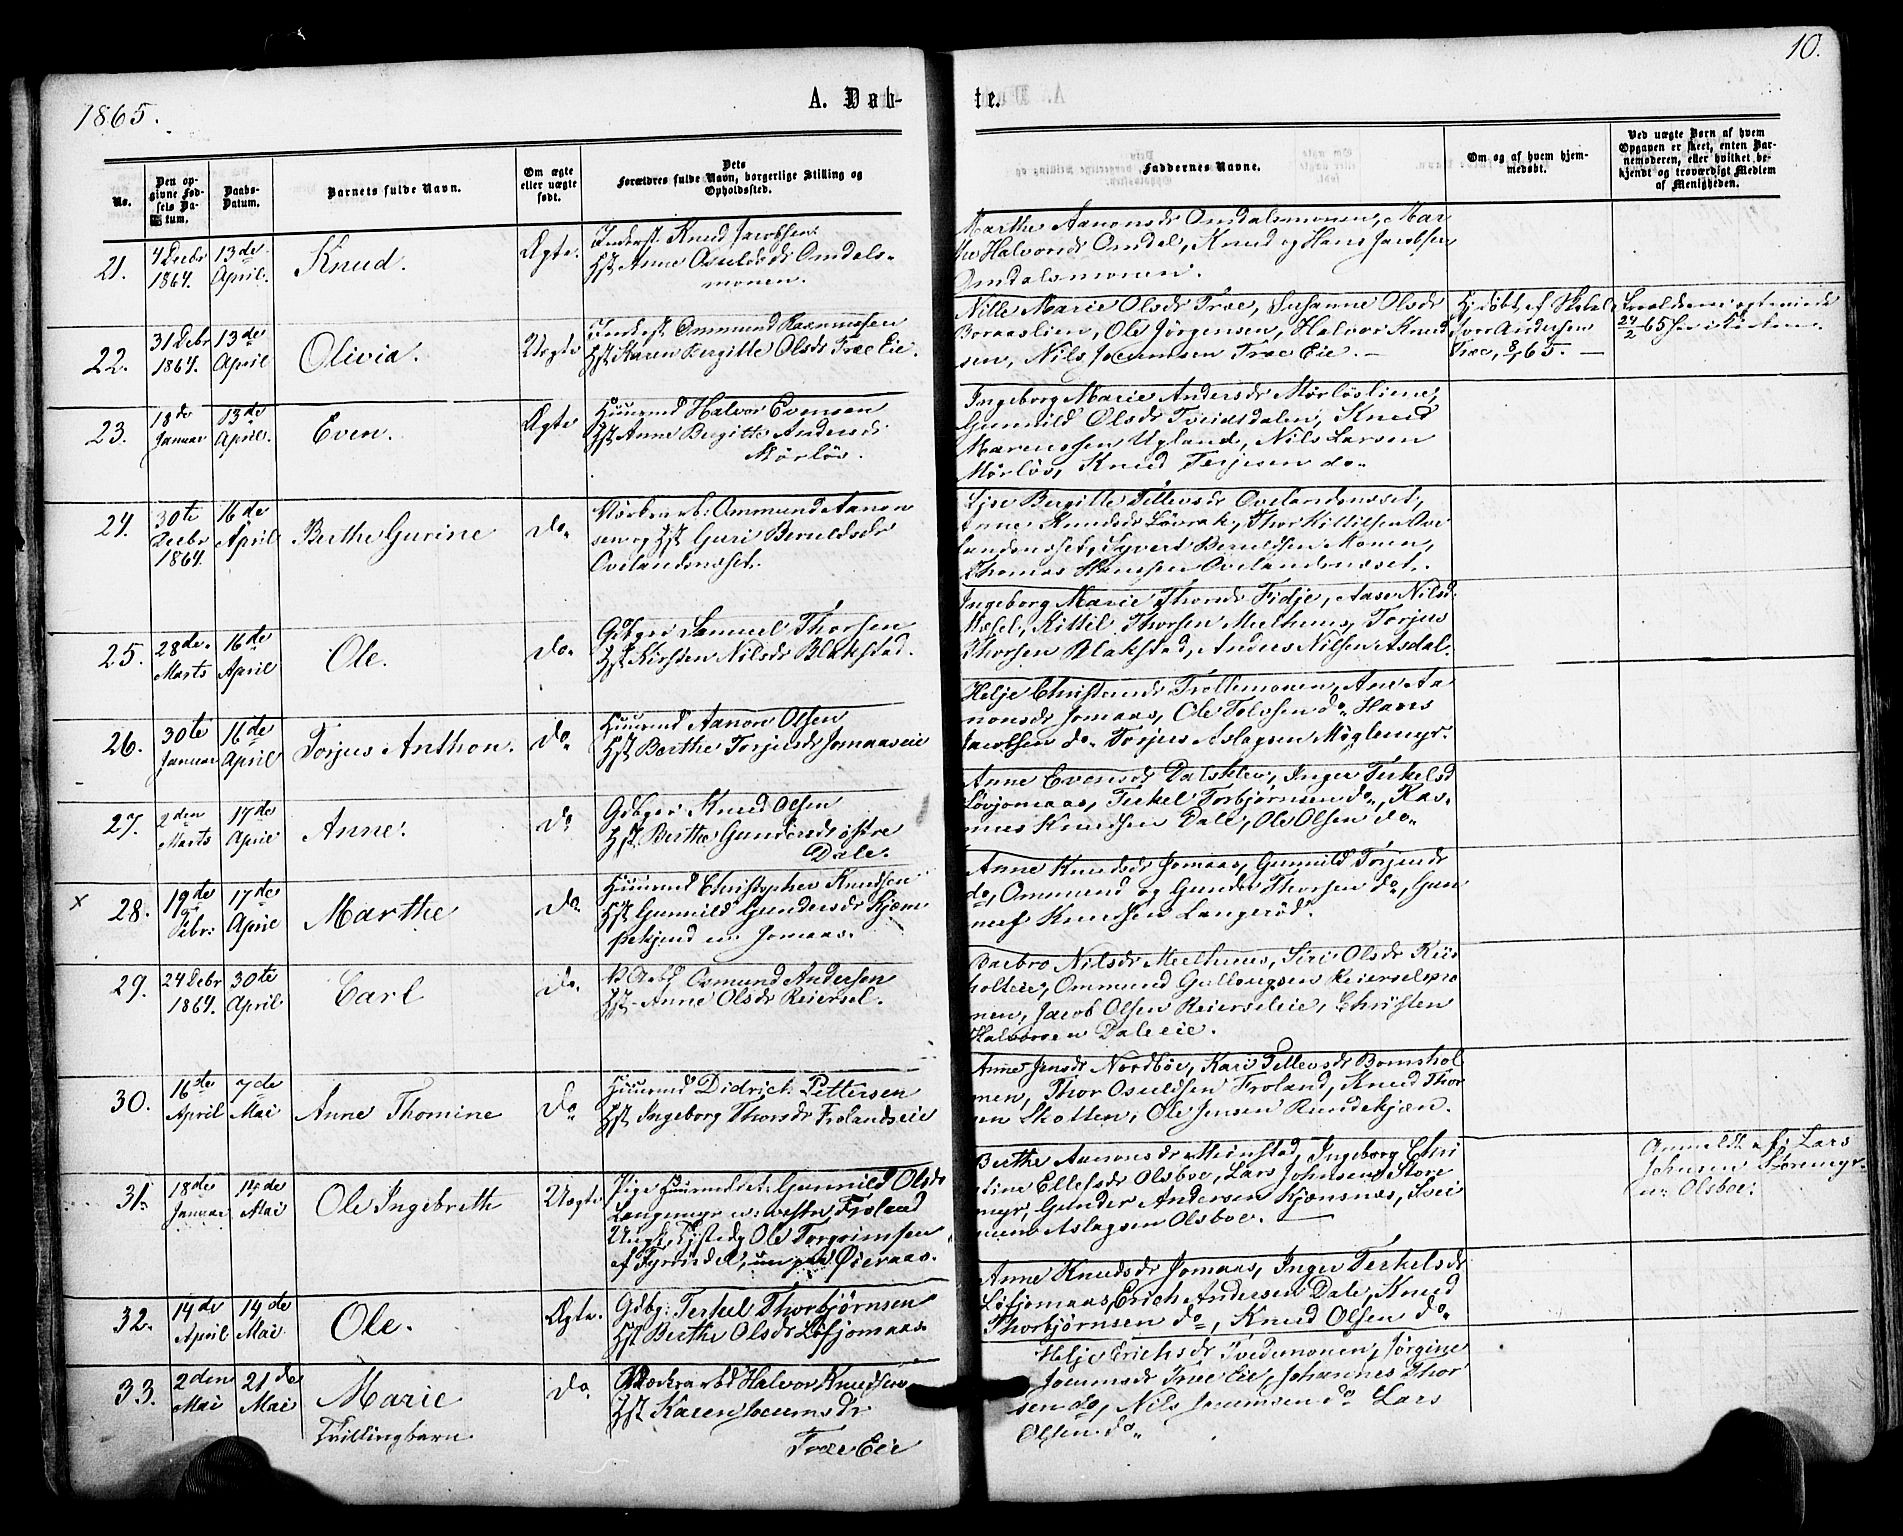 1865.
A. Døb-
te.
10.
No.
Den op-
givne Fød-
sels Da-
tum.
Daabs-
Datum.
Barnets fulde Navn.
Om ægte
eller uægte
født.
Dets
Forældres fulde Navn, borgerlige Stilling og
Opholdssted.
Faddernes Navne.
Om og af hvem hjem-
medøbt.
Ved uægte Børn af hvem
Opgaven er skeet, enten Bar-
nemoderen, eller hvilket be-
kjendt og troværdigt Medlem
af Menigheden.
21.
4 Decbr
1864.
13de
April.
Knud.
Ægte.
Inderst. Knud Jacobsen
Hst. Anne Osuldsdr Omdals-
monen.
Marthe Aanonsdr Omdalsmonen, Mar
the Halvorsdr Omdal, Knud og Hans Jacobsen
Omdalsmonen.
22.
31 Debr
1864.
13de
April
Olivia.
Uægte
Inderst. Ommund Rasmussen
Hst Karen Bergitte Olsdr Træ Eie.
Nille Marie Olsdr Træ, Susanne Olsdr
Boraaslien, Ole Jørgensen, Halvor Knud
sen, Nils Jocumsen Træ Eie. —
Hj.døbt af Skolel
Iver Andersen
Træ, 8/1 65. —
Forældrene
24/2 65 her i Kirken.
23.
18de
Januar
13de
April.
Even.
Ægte
Huusmd Halvor Evensen
Hst Anne Bergitte Andersdr
Mørløs.
Ingeborg Marie Andersdr Mørløsliene,
Gunnild Olsdr Tveitsdalen, Knud
Marcussen Ugland, Nils Larsen
Mørløs, Knud Terjesen do.
24.
30te
Decbr
1864.
16de
April
Berthe Gurine
do.
Værkarb: Ommund Aanon
sen og Hst Guri Beruldsdr
Ovelandsnæset.
Bergitte Tellevsdr Ovelandsnæset,
Anne Knudsdr Løvrak, Thor Kittilsen Ove
landsnæset, Syvert Beruldsen Monen,
Thomas Hanssen Ovelandsnæset.
25.
28de
Marts
16de
April
Ole.
do.
Gdbger Samuel Thorsen
Hst Kirsten Nilsdr Blakstad.
Ingeborg Marie Thorsdr Fidje, Aase Nilsd.
Næsel, Kittil Thorsen Melhuus, Torjus
Thorsen Blakstad, Anders Nilsen Asdal.
26.
30te
Januar
16de
April
Torjus Anthon.
do.
Huusmd Aanon Olsen
Hst Berthe Torjusdr Jomaaseie
Helje Christensdr Trollemonen, Ane Aa
nonsdr Jomaas, Ole Tolvsen do. Hans
Jacobsen do. Torjus Aslagsen Møglemyr.
27.
2den
Marts
17de
April
Anne.
do
Gdbger Knud Olsen
Hst Berthe Gundersdr østre
Dale.
Anne Evensdr Dalskleu, Inger Terkelsd
Løvjomaas, Terkel Torbjørnsen do, Ras-
mus Knudsen Dale, Ole Olsen do.
x
28.
19de
Febr:
17de
April
Marthe
do
Huusmd Christopher Knudsen
Hst Gunnild Gundersdr Kjæm
pekjend u: Jomaas.
Anne Knudsdr Jomaas, Gunnild Torjusdr
do, Ommund og Gunder Thorsen do, Gun
neuf Knudsen Langerød.
29.
24 Debr
1864.
30te
April
Carl
do.
Osmund Andersen
Hst. Anne Olsdr Reiersel.
Barbro Nilsdr Melhuus, Siri Olsdr Riis
holteie, Ommund Gullovsen Reierselmo
nen, Jacob Olsen Reierseleie, Christen
Halvorsen Daleeie.
30.
16de
April
7de
Mai
Anne Thomine
do
Huusmd Didrich Pettersen
Hst Ingeborg Thorsdr Frolandseie
Anne Jensdr Nordbøe, Kari Tellevsdr Bomshol
men, Thor Osuldsen Froland, Knud Thor
sen Skotten, Ole Jensen Rundekjæn.
31.
18de
Januar
14de
Mai
Ole Ingebreth
Uægte
Pige Huusmdsdt: Gunnild Olsdr
Langemyr u: vestre Froland
Ungk. Tjstedg Ole Torgrimsen
af Tyrisdal, Øieraas.
Berthe Aanonsdr Mjønstad, Ingeborg Chri
stine Ellefsdr Olsboe, Lars Johnsen Store
myr, Gunder Andersen Kjønsnæs, Svei
nung Aslagsen Olsboe. —
Anmeldt af Lars
Johnsen Storemyr
u: Olsboe.
32.
14de
April
14de
Mai
Ole.
Ægte.
Gdbg: Terkel Thorbjørnsen
Hst Berthe Olsdr Løfjomaas.
Anne Knudsdr Jomaas, Inger Terkelsdr
Løfjomaas, Erich Andersen Dale, Knud
Thorbjørnsen do, Knud Olsen do
33.
2den
Mai
21de
Mai
Marie
Tvillingbarn.
do
Værksarbd Halvor Knudsen
Hst Karen Jocumsdr
Træ Eie
Helje Erichsdr Tvedemonen, Jørgine
Jocumsdr Træ Eie, Johannes Thor
sen do, Nils Jocumsen do Lars
Olsen do